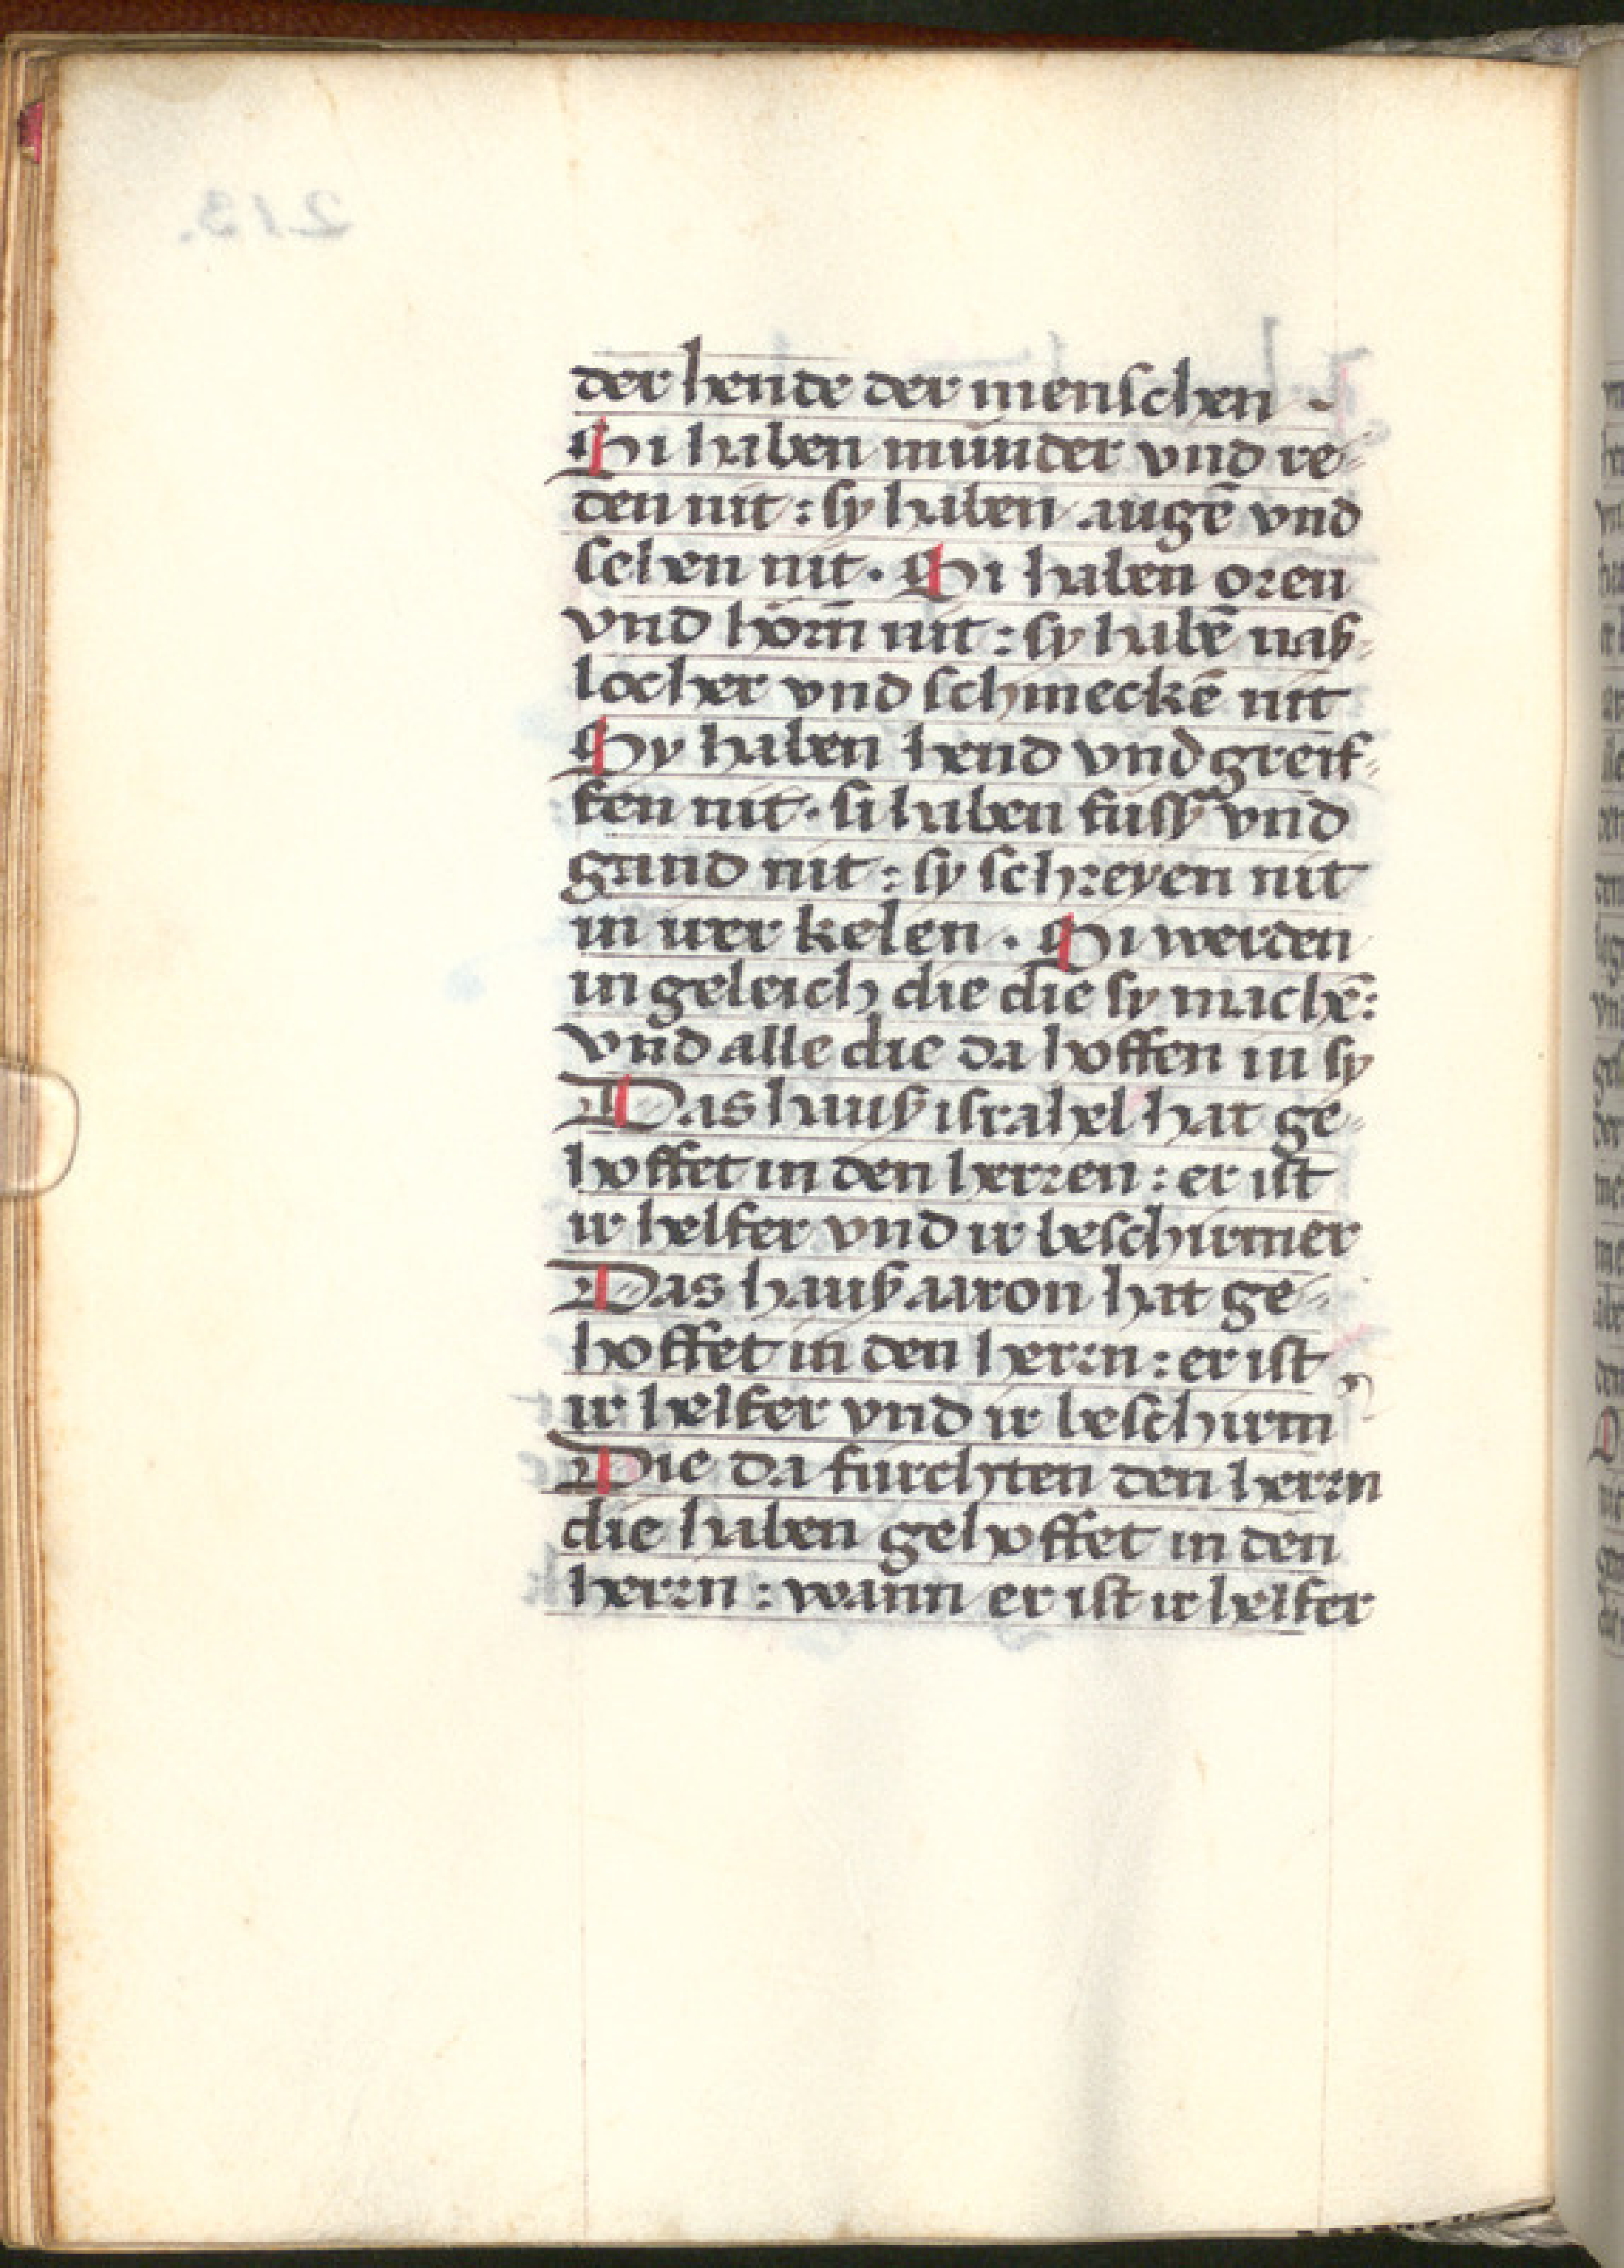 der hende der menschen .
Si haben munder vnd re-
den nit : sy haben augē vnd
sehen nit . Si haben oren
vnd hörn̄ nit : sy habē naß-
locher vnd schmeckē nit
Sy haben hend vnd greif-
fen nit . si haben füss vnd
gand nit : sy schreyen nit
in irer kelen . Si werden
in geleich die die sy machē :
vnd alle die da hoffen in sy
Das hauß israhel hat ge-
hoffet in den herren : er ist
ir helfer vnd ir beschirmer
Das hauß aaron hat ge-
hoffet in den herrn : er ist
ir helfer vnd ir beschirm
Die da furchten den herrn
die haben gehoffet in den
herrn : wann er ist ir helfer